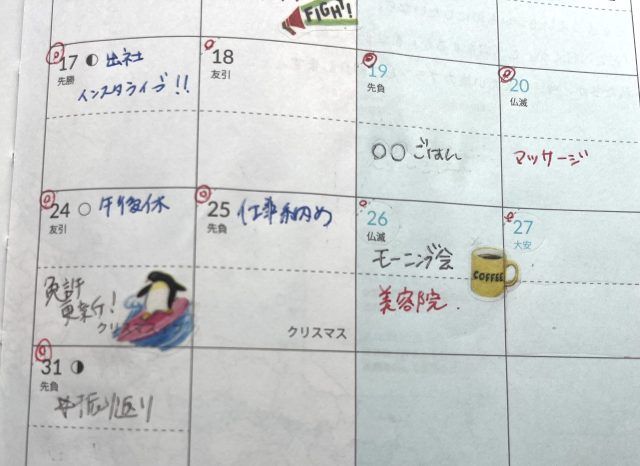 FIGHT!
17 出社
先勝
インスタライブ!!
18
友引
19
先負
○○ごはん
20
仏滅
マッサージ
24 午後休
友引
免許
更新!
クリスマス
25 仕事納め
先負
クリスマス
26
仏滅
モーニング会
美容院
COFFEE
27
大安
31
先負
#振り返り